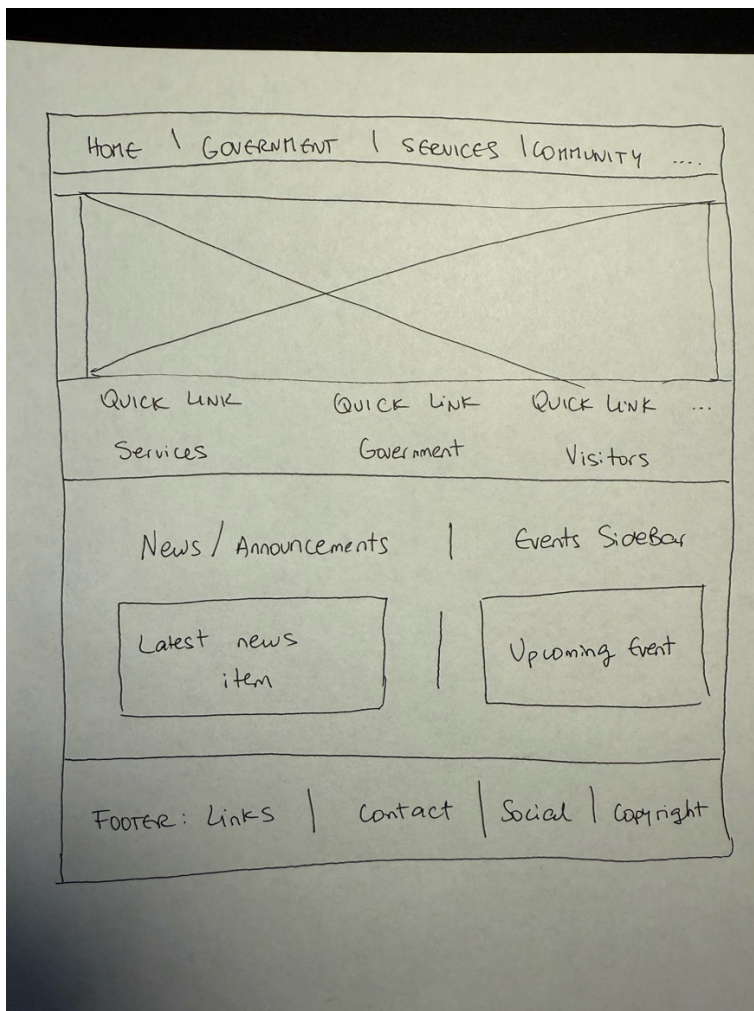 HOME | GOVERNMENT | SERVICES | COMMUNITY ....
QUICK LINK QUICK LINK QUICK LINK ...
Services Government Visitors
News / Announcements | Events SideBar
Latest news | Upcoming Event
item
FOOTER: Links | Contact | Social | Copyright